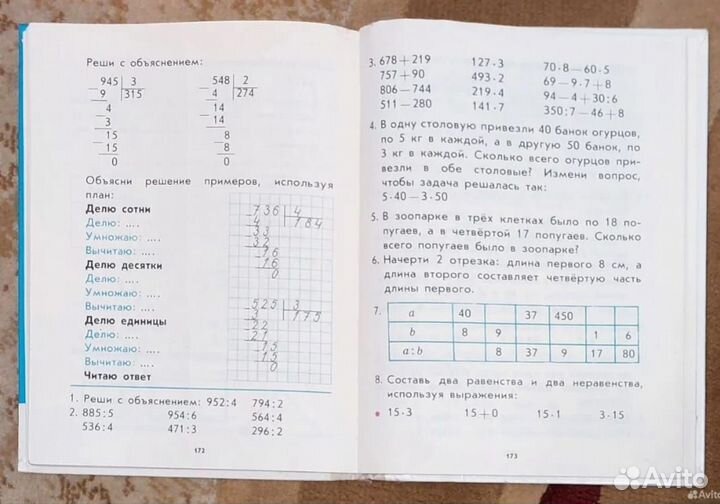 Реши с объяснением:
945 3
9 315
4
3
15
15
0
548 2
4 274
14
14
8
8
0
Объясни решение примеров, используя
план:
Делю сотни
Делю: ....
Умножаю: ....
Вычитаю: ....
Делю десятки
Делю: ....
Умножаю: ....
Вычитаю: ....
Делю единицы
Делю: ....
Умножаю: ....
Вычитаю: ....
Читаю ответ
736 4
4 184
33
32
16
16
0
525 3
3 175
22
21
15
15
0
1. Реши с объяснением: 952:4 794:2
2. 885:5 954:6 564:4
536:4 471:3 296:2
172
3. 678+219 127·3 70·8−60·5
757+90 493·2 69−9·7+8
806−744 219·4 94−4+30:6
511−280 141·7 350:7−46+8
4. В одну столовую привезли 40 банок огурцов,
по 5 кг в каждой, а в другую 50 банок, по
3 кг в каждой. Сколько всего огурцов при-
везли в обе столовые? Измени вопрос,
чтобы задача решалась так:
5·40−3·50
5. В зоопарке в трёх клетках было по 18 по-
пугаев, а в четвёртой 17 попугаев. Сколько
всего попугаев было в зоопарке?
6. Начерти 2 отрезка: длина первого 8 см, а
длина второго составляет четвёртую часть
длины первого.
7. a 40 37 450
b 8 9 1 6
a:b 8 37 9 17 80
8. Составь два равенства и два неравенства,
используя выражения:
15·3 15+0 15·1 3·15
173
Avito
Avito